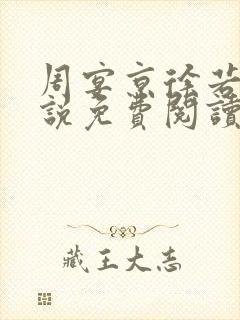 周宴京徐若
說免費閱讀
藏王大志